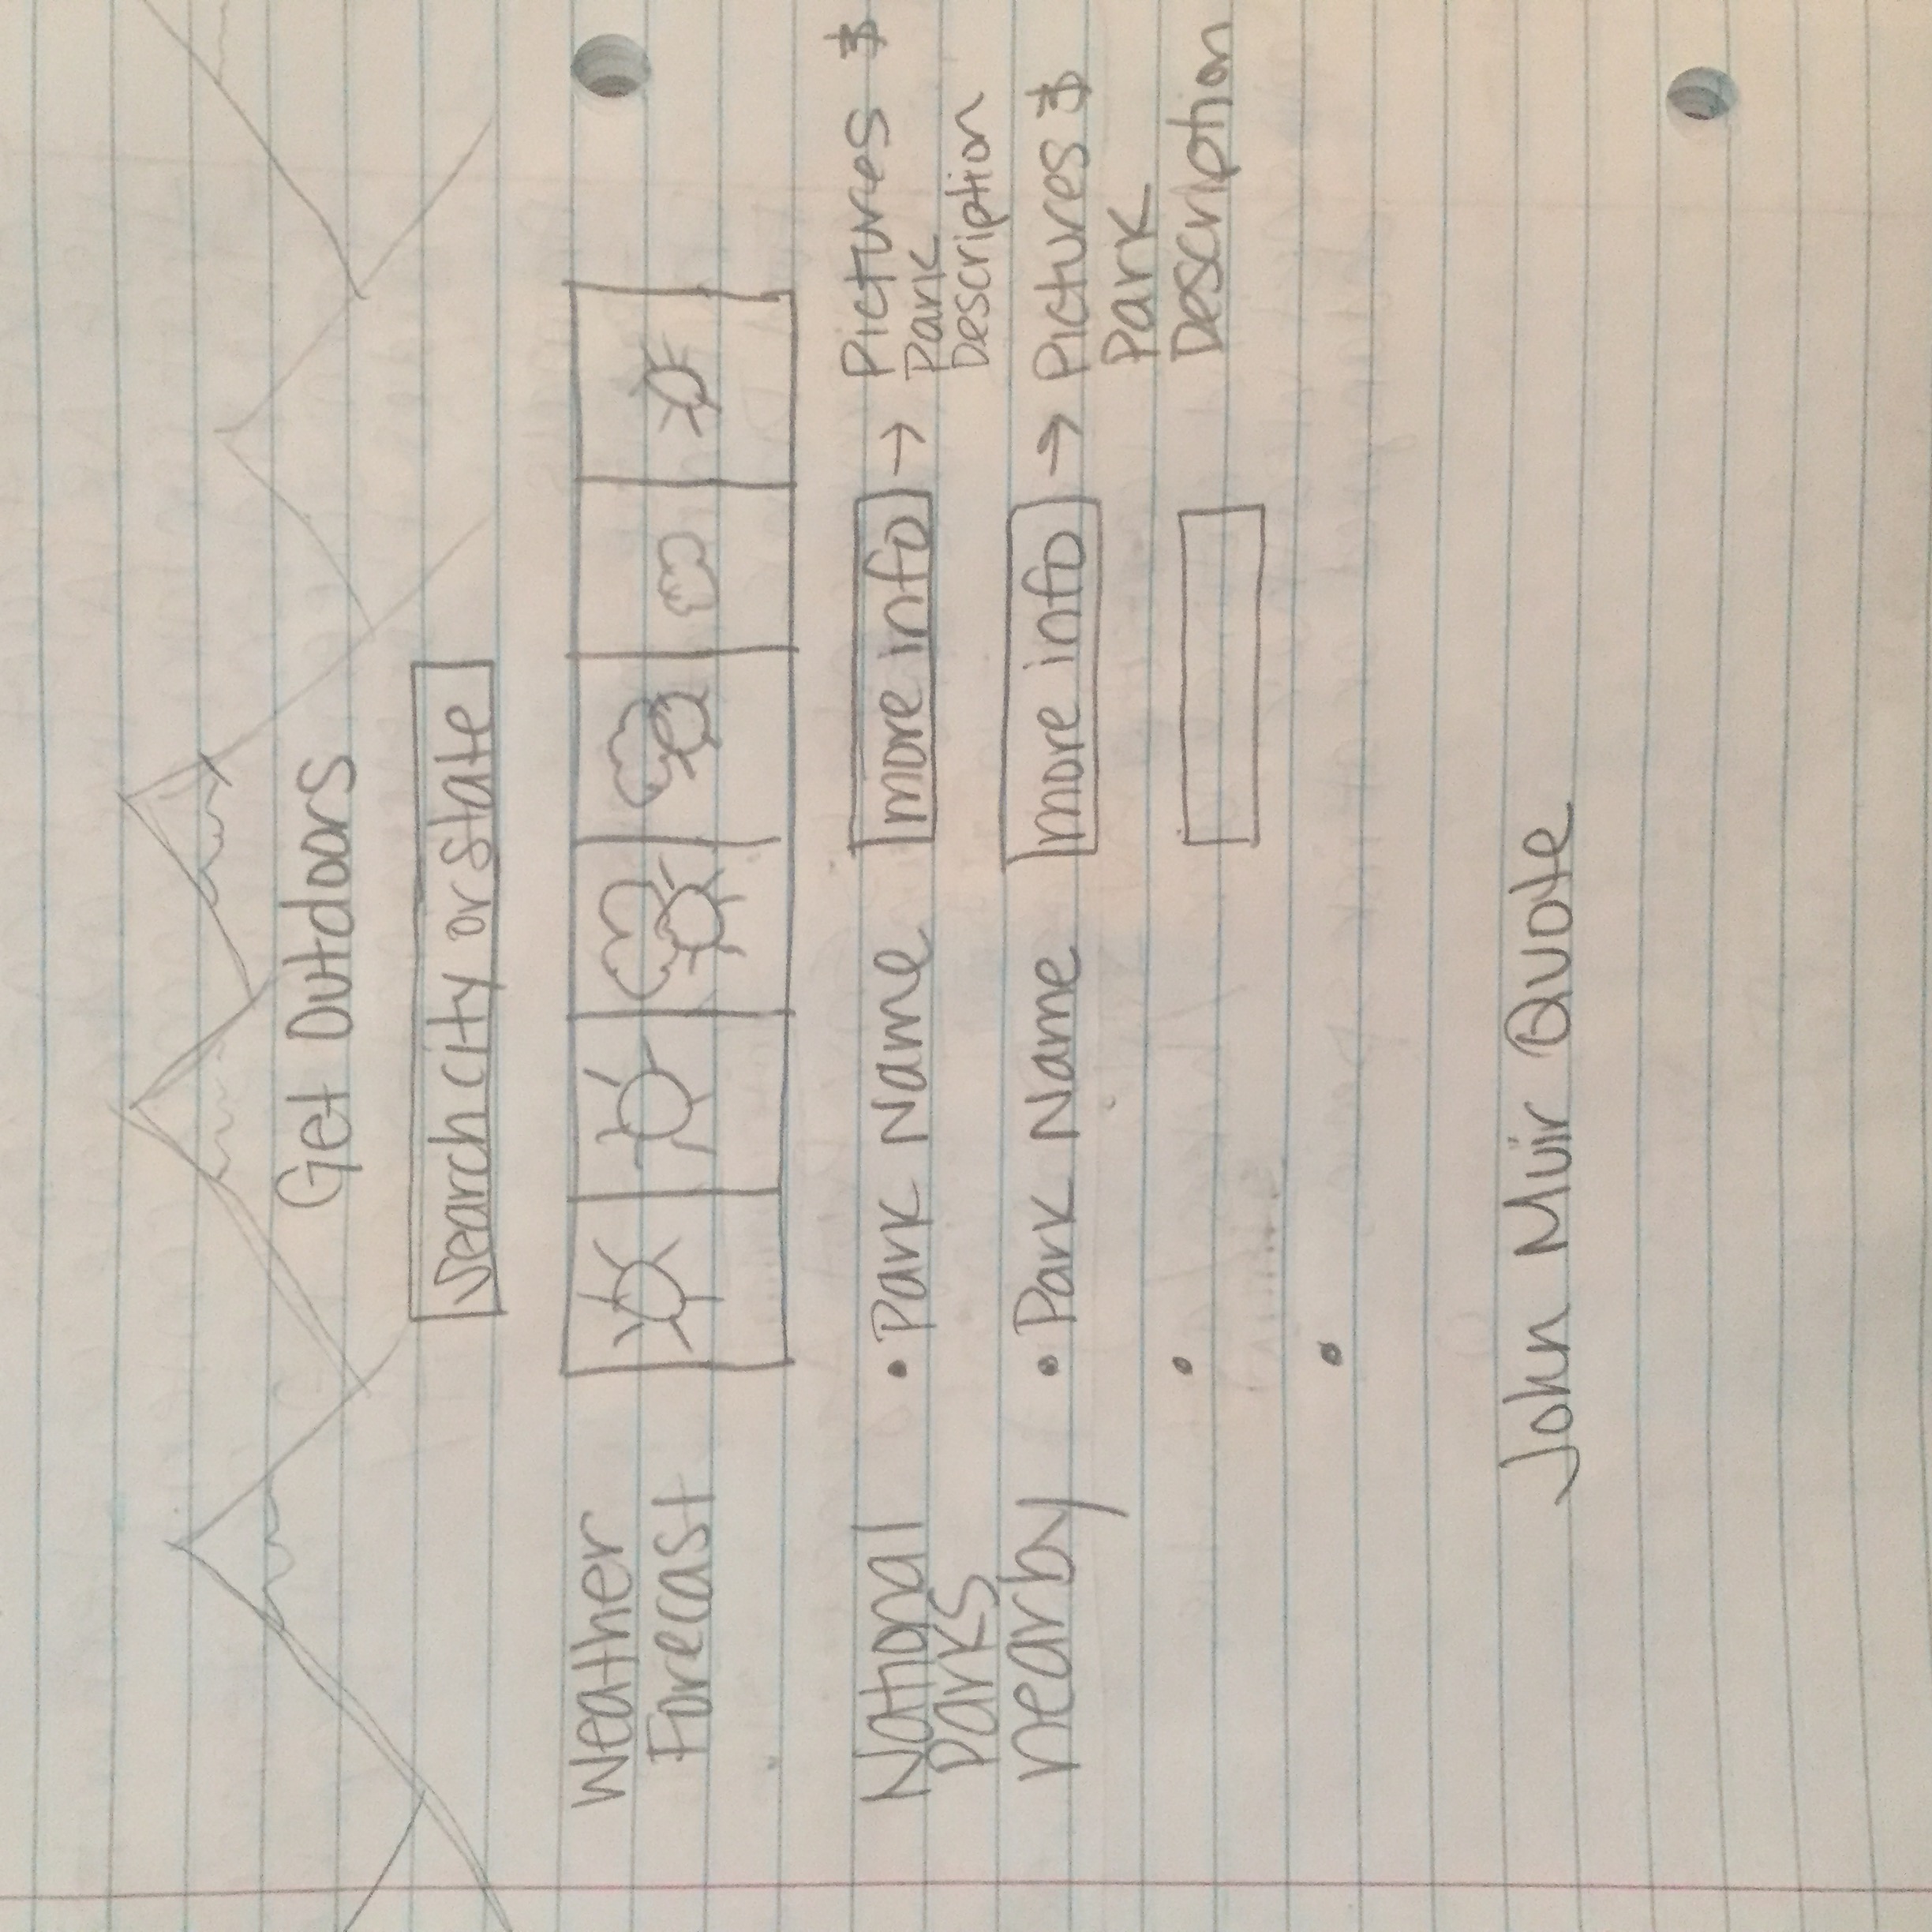 Get Outdoors
Search city or state
Weather
Forecast
National
Parks
nearby
• Park Name
more info
→ Pictures &
Park
Description
• Park Name
more info
→ Pictures &
Park
Description
•
•
John Muir Quote